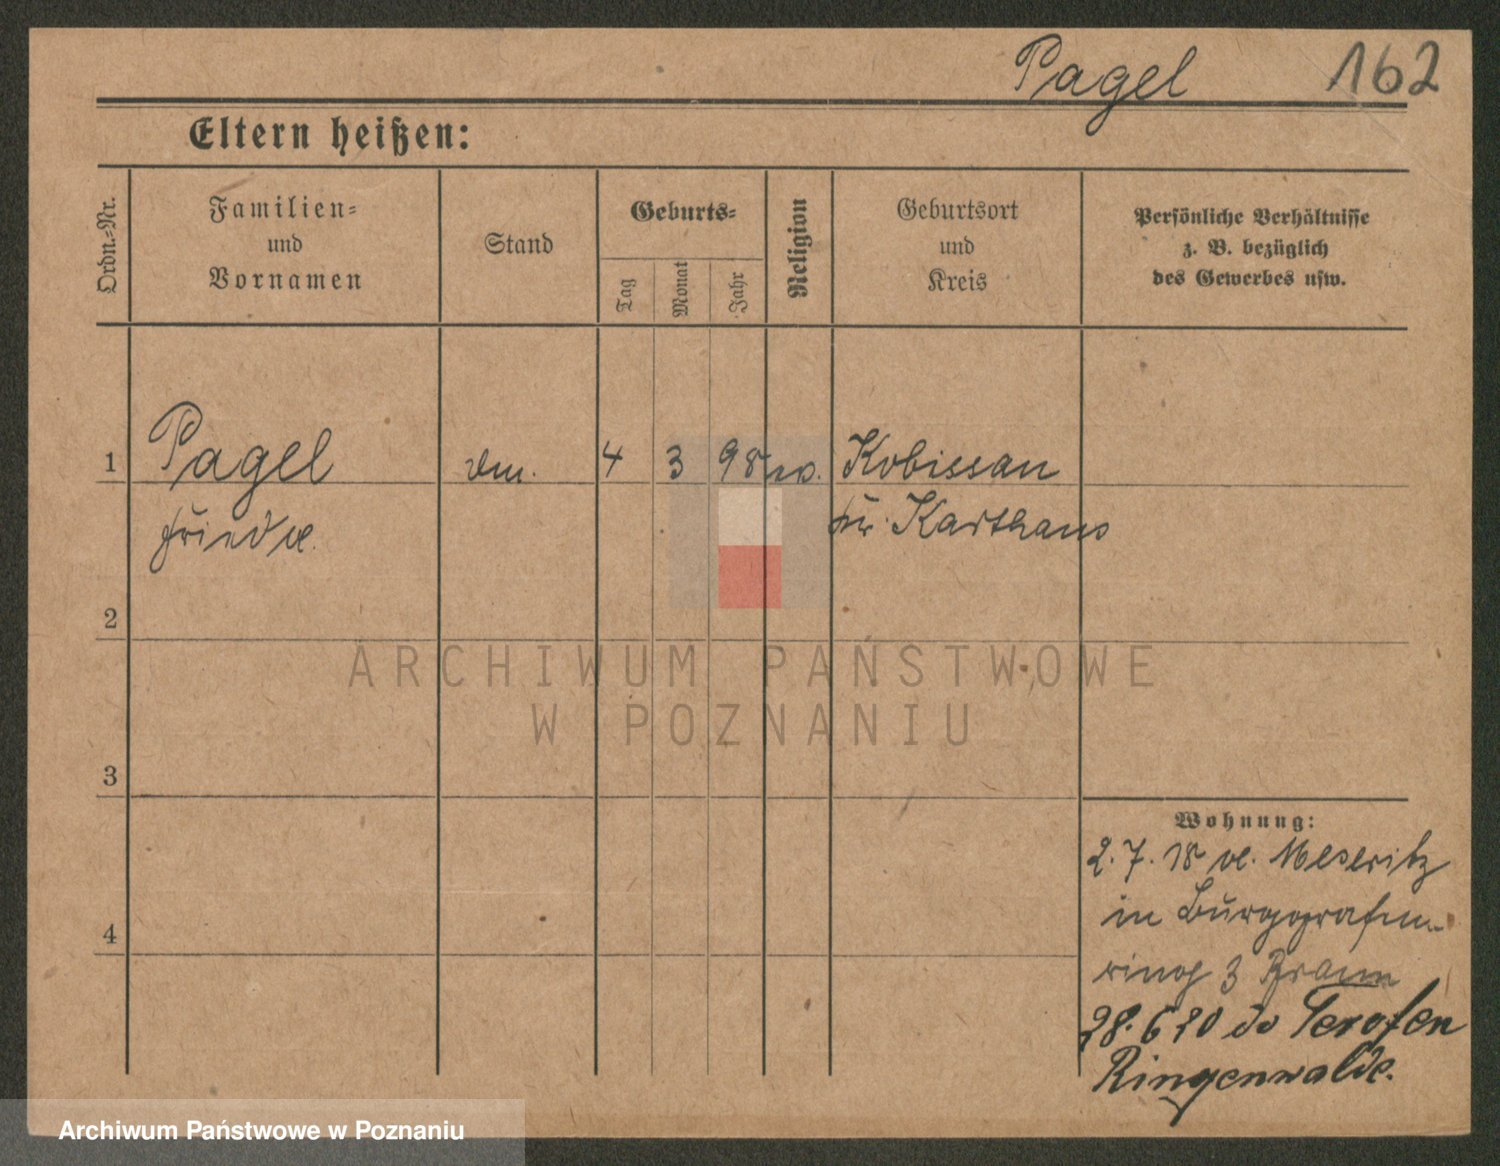 Pagel 162
Eltern heißen:
Ordn.-Nr.
Familien-
und
Vornamen
Stand
Geburts-
Tag
Monat
Jahr
Religion
Geburtsort
und
Kreis
Persönliche Verhältnisse
z. B. bezüglich
des Gewerbes usw.
1 Pagel 4 3 98 Kobissau
Kr. Karthaus
2
3
4
Wohnung:
2. 7. 18 v. Meseritz
in Burggrafen-
ring 3 Braun
28. 6 20
Ringenwalde.
ARCHIWUM PAŃSTWOWE
W POZNANIU
Archiwum Państwowe w Poznaniu